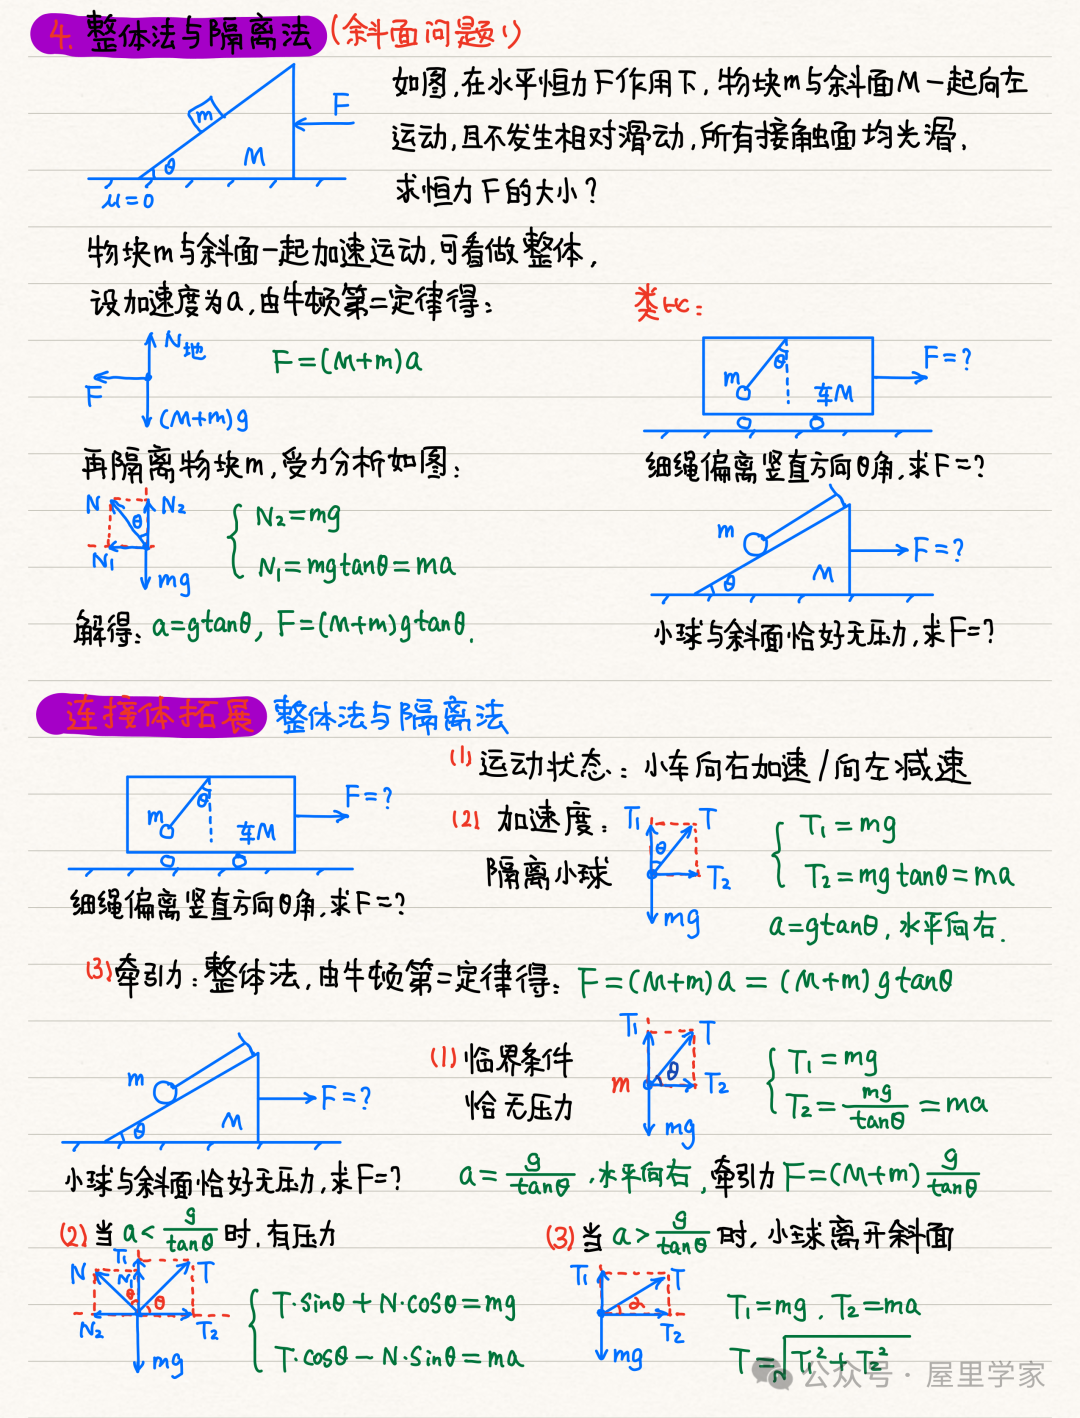 4. 整体法与隔离法 (斜面问题1)
如图,在水平恒力F作用下,物块m与斜面M一起向左
运动,且不发生相对滑动,所有接触面均光滑.
求恒力F的大小?
m
F
M
θ
μ=0
物块m与斜面一起加速运动,可看做整体,
设加速度为a,由牛顿第二定律得:
N地
F
(M+m)g
F=(M+m)a
再隔离物块m,受力分析如图:
N
N₂
θ
N₁
mg
N₂=mg
N₁=mgtanθ=ma
解得: a=gtanθ, F=(M+m)gtanθ.
类比:
θ
m
车M
F=?
细绳偏离竖直方向θ角,求F=?
m
M
θ
F=?
小球与斜面恰好无压力,求F=?
连接体拓展 整体法与隔离法
θ
m
车M
F=?
细绳偏离竖直方向θ角,求F=?
(1) 运动状态: 小车向右加速/向左减速
(2) 加速度:
隔离小球
T₁
T
θ
T₂
mg
T₁=mg
T₂=mgtanθ=ma
a=gtanθ,水平向右.
(3)牵引力:整体法,由牛顿第二定律得: F=(M+m)a=(M+m)gtanθ
m
M
θ
F=?
小球与斜面恰好无压力,求F=?
(1) 临界条件
恰无压力
T₁
T
m
θ
T₂
mg
T₁=mg
T₂=mg/tanθ=ma
a=g/tanθ,水平向右,牵引力F=(M+m)g/tanθ
(2)当a<g/tanθ时,有压力
T₁
N
N₁
T
θ
θ
N₂
T₂
mg
T·sinθ+N·cosθ=mg
T·cosθ-N·sinθ=ma
(3)当a>g/tanθ时,小球离开斜面
T₁
T
α
T₂
mg
T₁=mg, T₂=ma
T=√(T₁²+T₂²)
公众号·屋里学家